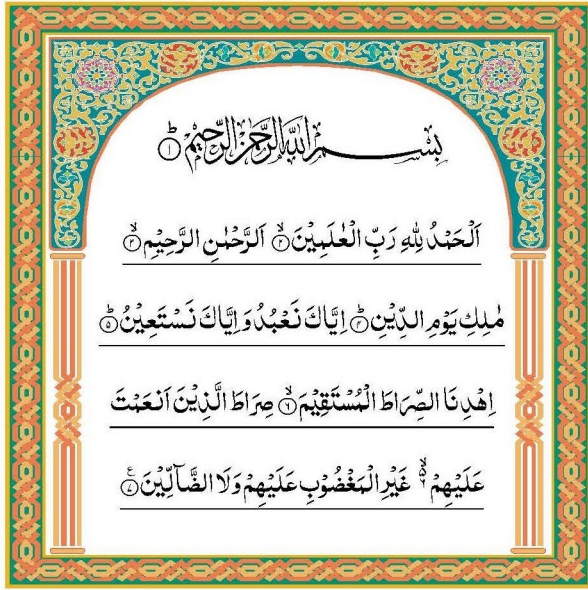 بِسْمِ اللّٰهِ الرَّحْمٰنِ الرَّحِيْمِ ۝۱ؕ
اَلْحَمْدُ لِلّٰهِ رَبِّ الْعٰلَمِيْنَ ۝۲ۙ اَلرَّحْمٰنِ الرَّحِيْمِ ۝۳ۙ
مٰلِكِ يَوْمِ الدِّيْنِ ۝۴ؕ اِيَّاكَ نَعْبُدُ وَ اِيَّاكَ نَسْتَعِيْنُ ۝۵ؕ
اِهْدِنَا الصِّرَاطَ الْمُسْتَقِيْمَ ۝۶ۙ صِرَاطَ الَّذِيْنَ اَنْعَمْتَ
عَلَيْهِمْ ۙ۬ۦ غَيْرِ الْمَغْضُوْبِ عَلَيْهِمْ وَلَا الضَّآلِّيْنَ ۝۷ع